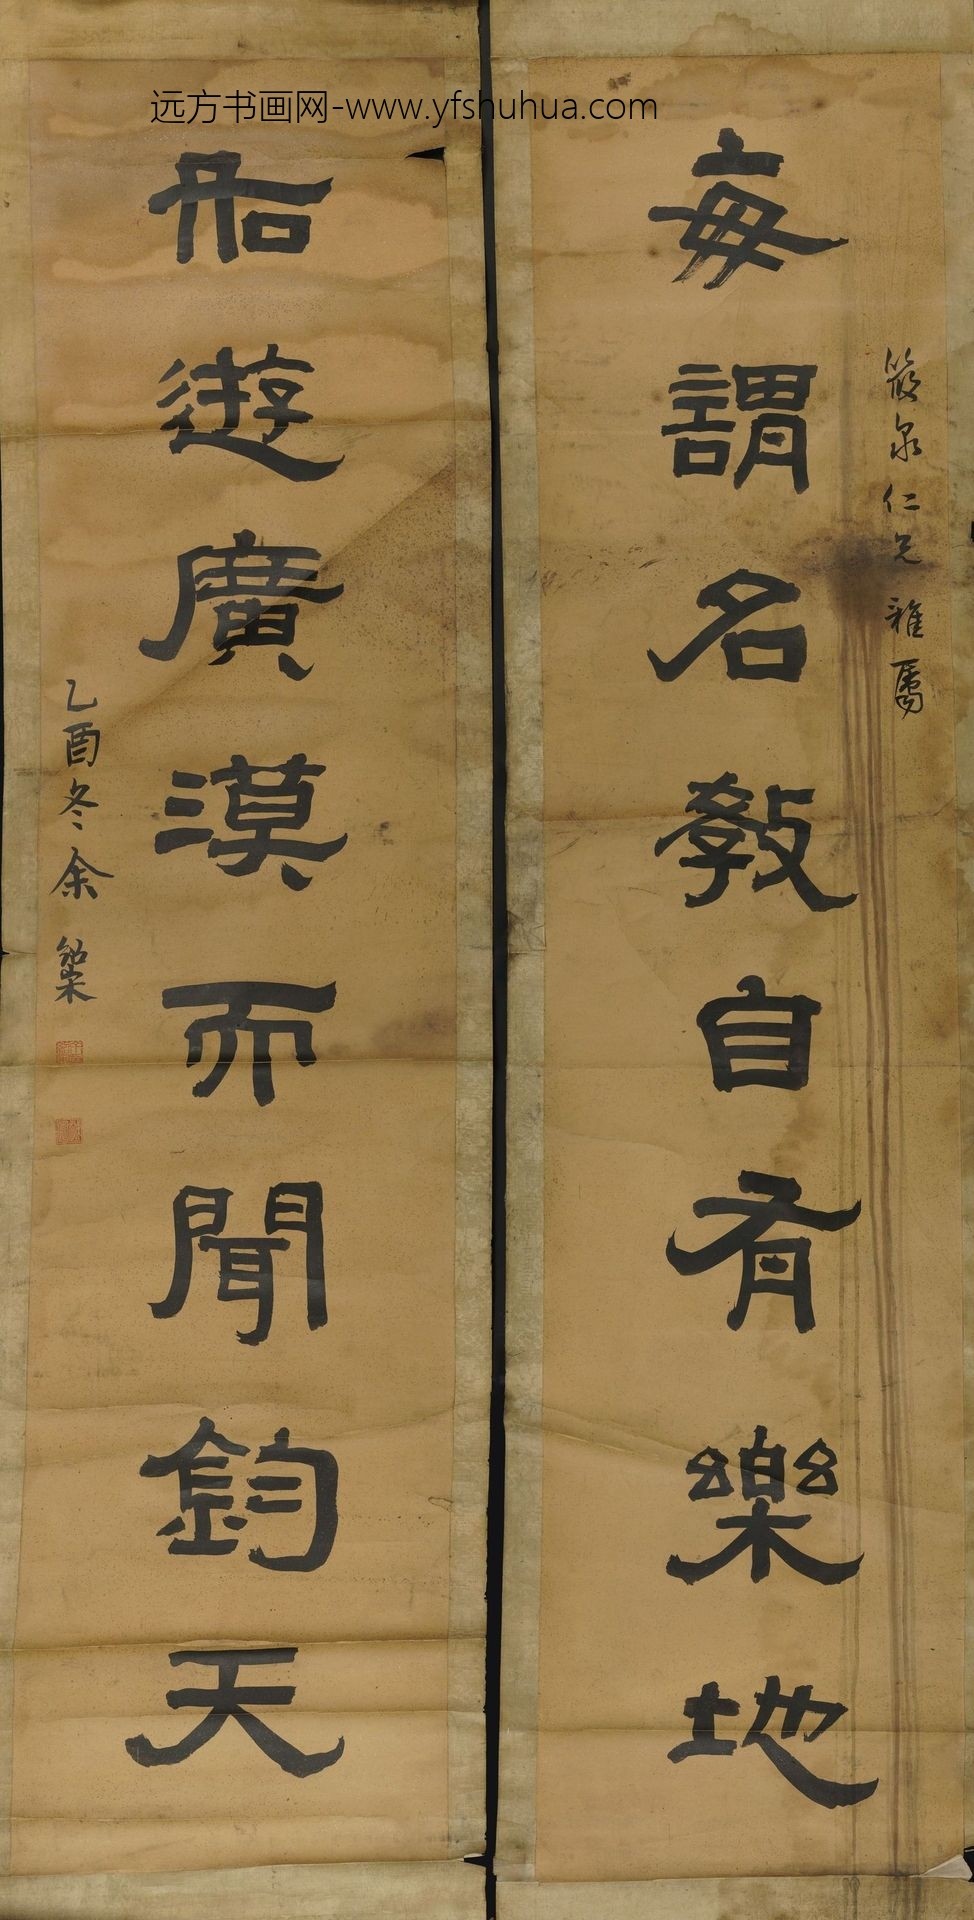 远方书画网-www.yfshuhua.com
筱泉仁兄雅属
每謂名教自有樂地
船遊廣漠而聞鈞天
乙酉冬余紹宋